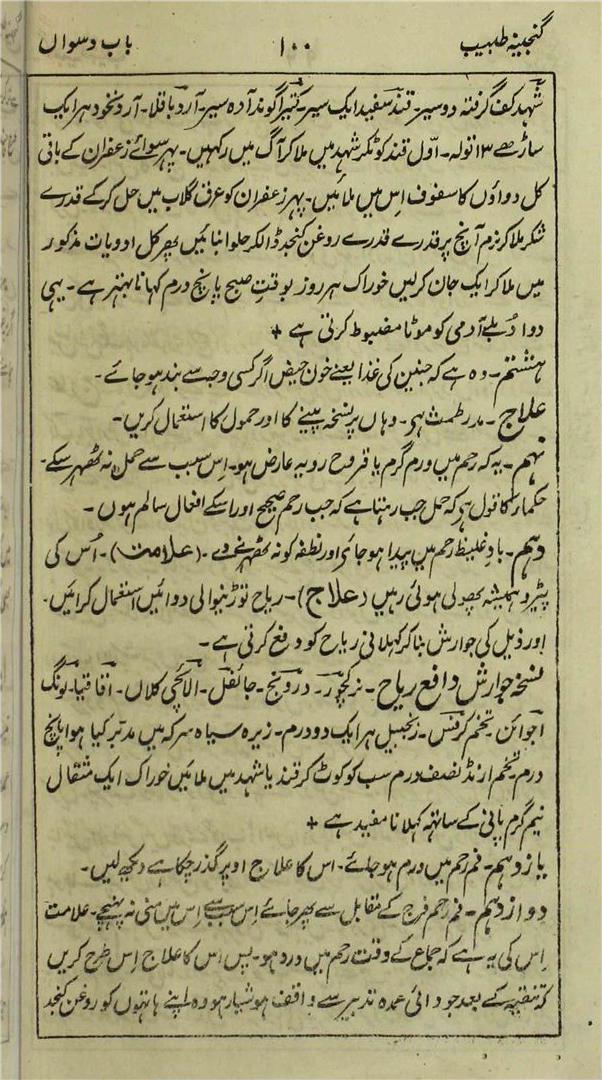 گنجینہ طبیب ۱۰۰ باب دسواں
شہد کف گرفتہ دو سیر۔ قند سفید ایک سیر۔ کتیرا گوند آدہ سیر۔ آرد باقلا۔ آرد نخود ہر ایک
ساڑھے ۱۳ تولہ۔ اوّل قند کوٹکر شہد میں ملا کر آگ میں رکہیں۔ پہر سوائے زعفران کے باقی
کل دواؤں کا سفوف اِس میں ملائیں۔ پہر زعفران کو عرق گلاب میں حل کر کے قدرے
شکر ملا کر نرم آنچ پر قدرے قدرے روغن کنجد ڈالکر حلوا بنائیں پھر کل ادویات مذکور
میں ملا کر ایک جان کر لیں خوراک ہر روز بوقتِ صبح پانچ درم کہانا بہتر ہے۔ یہی
دوا دُبلے آدمی کو موٹا مضبوط کرتی ہے +
ہشتم۔ وہ ہے کہ جنین کی غذا یعنے خون حیض اگر کسی وجہ سے بند ہو جائے۔
علاج۔ مدر طمث ہی۔ وہاں پر نسخہ پینے کا اور حمول کا استعمال کریں۔
نہم۔ یہ کہ رحم میں ورم گرم یا قروح رویہ عارض ہو۔ اِس سبب سے حمل نہ ٹھہر سکے۔
حکمار کا قول ہی کہ حمل جب رہتا ہے کہ جب رحم صحیح اور اسکے افعال سالم ہوں۔
دہم۔ باد غلیظ رحم میں پیدا ہو جائی اور نطفہ کو نہ ٹھہرنے دے۔ (علامت)۔ اُس کی
پیڑو ہمیشہ پھولی ہوئی رہیں (علاج)۔ ریاح توڑنیوالی دوائیں استعمال کرائیں۔
اور ذیل کی جوارش بنا کر کہلانی ریاح کو دفع کرتی ہے۔
نسخہ جوارش دافع ریاح۔ نرکچور۔ درونج۔ جائفل۔ الائچی کلاں۔ اقاقیا۔ لونگ
اجوائن۔ تخم کرفس۔ زنجبیل ہر ایک دو درم۔ زیرہ سیاہ سرکہ میں مدبّر کیا ہوا پانچ
درم۔ تخم ارنڈ نصف درم سب کو کوٹ کر قند یا شہد میں ملائیں خوراک ایک مثقال
نیم گرم پانی کے ساتھہ کہلانا مفید ہے +
یازدہم۔ فم رحم میں ورم ہو جائے۔ اس کا علاج اوپر گذر چکا ہے دیکھ لیں۔
دوازدہم۔ فم رحم فرج کے مقابل سے پھر جائے اِس سبب سے اِس میں منی نہ پہنچے۔ علامت
اِس کی یہ ہے کہ جماع کے وقت رحم میں درد ہو۔ پس اس کا علاج اِس طرح کریں
کہ تنقیہ کے بعد جو دائی عمدہ تدبیر سے واقف ہوشیار ہو وہ اپنے ہاتہوں کو روغن کنجد